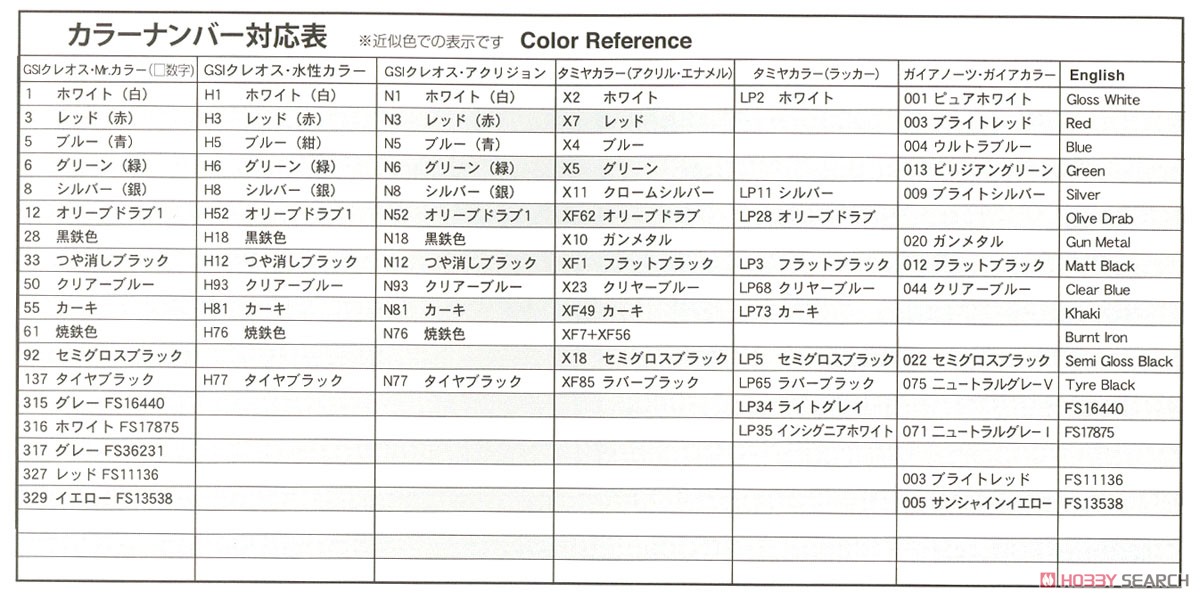 カラーナンバー対応表 ※近似色での表示です Color Reference
GSIクレオス・Mr.カラー(□数字) GSIクレオス・水性カラー GSIクレオス・アクリジョン タミヤカラー(アクリル・エナメル) タミヤカラー(ラッカー) ガイアノーツ・ガイアカラー English
1 ホワイト（白） H1 ホワイト（白） N1 ホワイト（白） X2 ホワイト LP2 ホワイト 001 ピュアホワイト Gloss White
3 レッド（赤） H3 レッド（赤） N3 レッド（赤） X7 レッド 003 ブライトレッド Red
5 ブルー（青） H5 ブルー（紺） N5 ブルー（青） X4 ブルー 004 ウルトラブルー Blue
6 グリーン（緑） H6 グリーン（緑） N6 グリーン（緑） X5 グリーン 013 ビリジアングリーン Green
8 シルバー（銀） H8 シルバー（銀） N8 シルバー（銀） X11 クロームシルバー LP11 シルバー 009 ブライトシルバー Silver
12 オリーブドラブ1 H52 オリーブドラブ1 N52 オリーブドラブ1 XF62 オリーブドラブ LP28 オリーブドラブ Olive Drab
28 黒鉄色 H18 黒鉄色 N18 黒鉄色 X10 ガンメタル 020 ガンメタル Gun Metal
33 つや消しブラック H12 つや消しブラック N12 つや消しブラック XF1 フラットブラック LP3 フラットブラック 012 フラットブラック Matt Black
50 クリアーブルー H93 クリアーブルー N93 クリアーブルー X23 クリヤーブルー LP68 クリヤーブルー 044 クリアーブルー Clear Blue
55 カーキ H81 カーキ N81 カーキ XF49 カーキ LP73 カーキ Khaki
61 焼鉄色 H76 焼鉄色 N76 焼鉄色 XF7+XF56 Burnt Iron
92 セミグロスブラック X18 セミグロスブラック LP5 セミグロスブラック 022 セミグロスブラック Semi Gloss Black
137 タイヤブラック H77 タイヤブラック N77 タイヤブラック XF85 ラバーブラック LP65 ラバーブラック 075 ニュートラルグレーV Tyre Black
315 グレー FS16440 LP34 ライトグレイ FS16440
316 ホワイト FS17875 LP35 インシグニアホワイト 071 ニュートラルグレーI FS17875
317 グレー FS36231
327 レッド FS11136 003 ブライトレッド FS11136
329 イエロー FS13538 005 サンシャインイエロー FS13538
HOBBY SEARCH